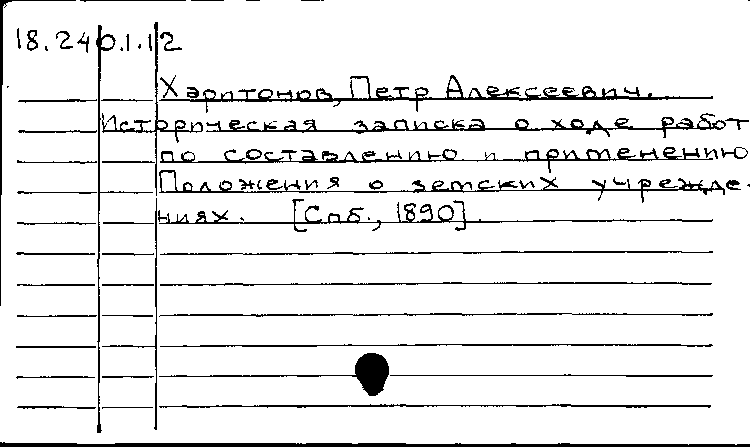 18.240.1.12
Харитонов, Петр Алексеевич.
Историческая записка о ходе работ
по составлению и применению
Положения о земских учрежде-
ниях. [Спб., 1890].